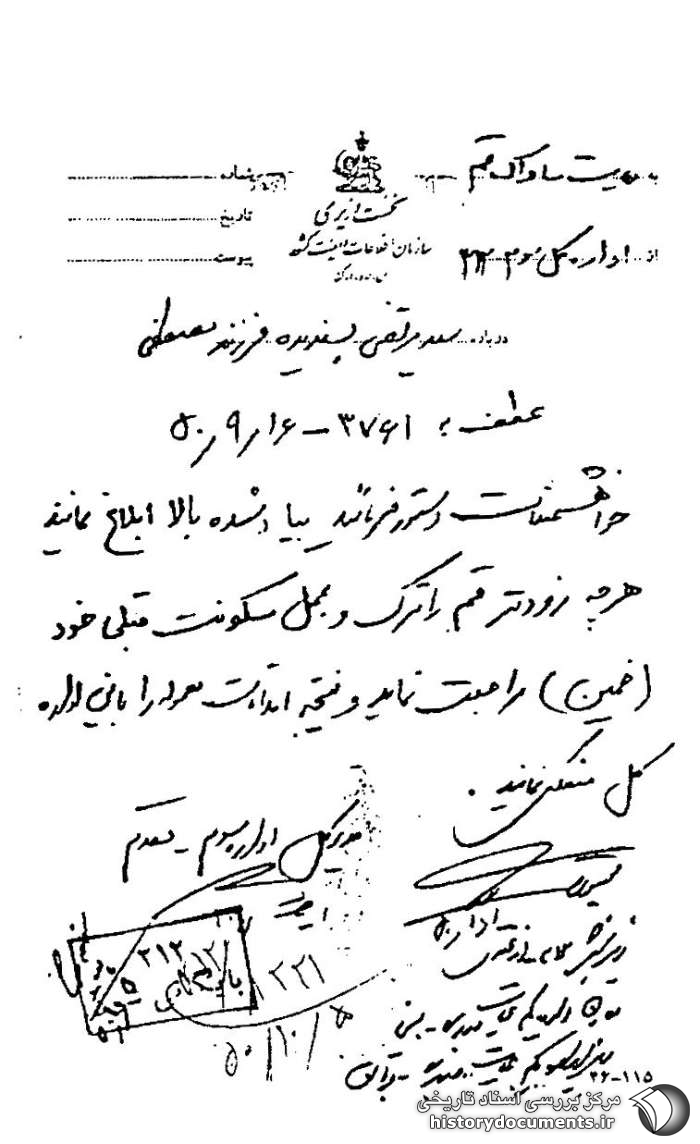 به مدیریت ساواک قم
شماره
از اداره کل سوم ۳۱۲
تاریخ
پیوست
نخست وزیری
سازمان اطلاعات و امنیت کشور
س.ا.و.ا.ک
درباره سید مرتضی پسندیده فرزند مصطفی
عطف به ۳۷۶۱ – ۱۶/۹/۵۰
خواهشمند است دستور فرمائید بیاد شده بالا ابلاغ نمایند
هر چه زودتر قم را ترک و بمحل سکونت قبلی خود
(خمین) مراجعت نماید و نتیجه اقدامات معموله را باین اداره
کل منعکس نمایند.
مدیر کل اداره سوم – مقدم
۳۱۲
۲۲۱
۵۰/۱۰/۵
۳۶-۱۱۵
مرکز بررسی اسناد تاریخی
historydocuments.ir